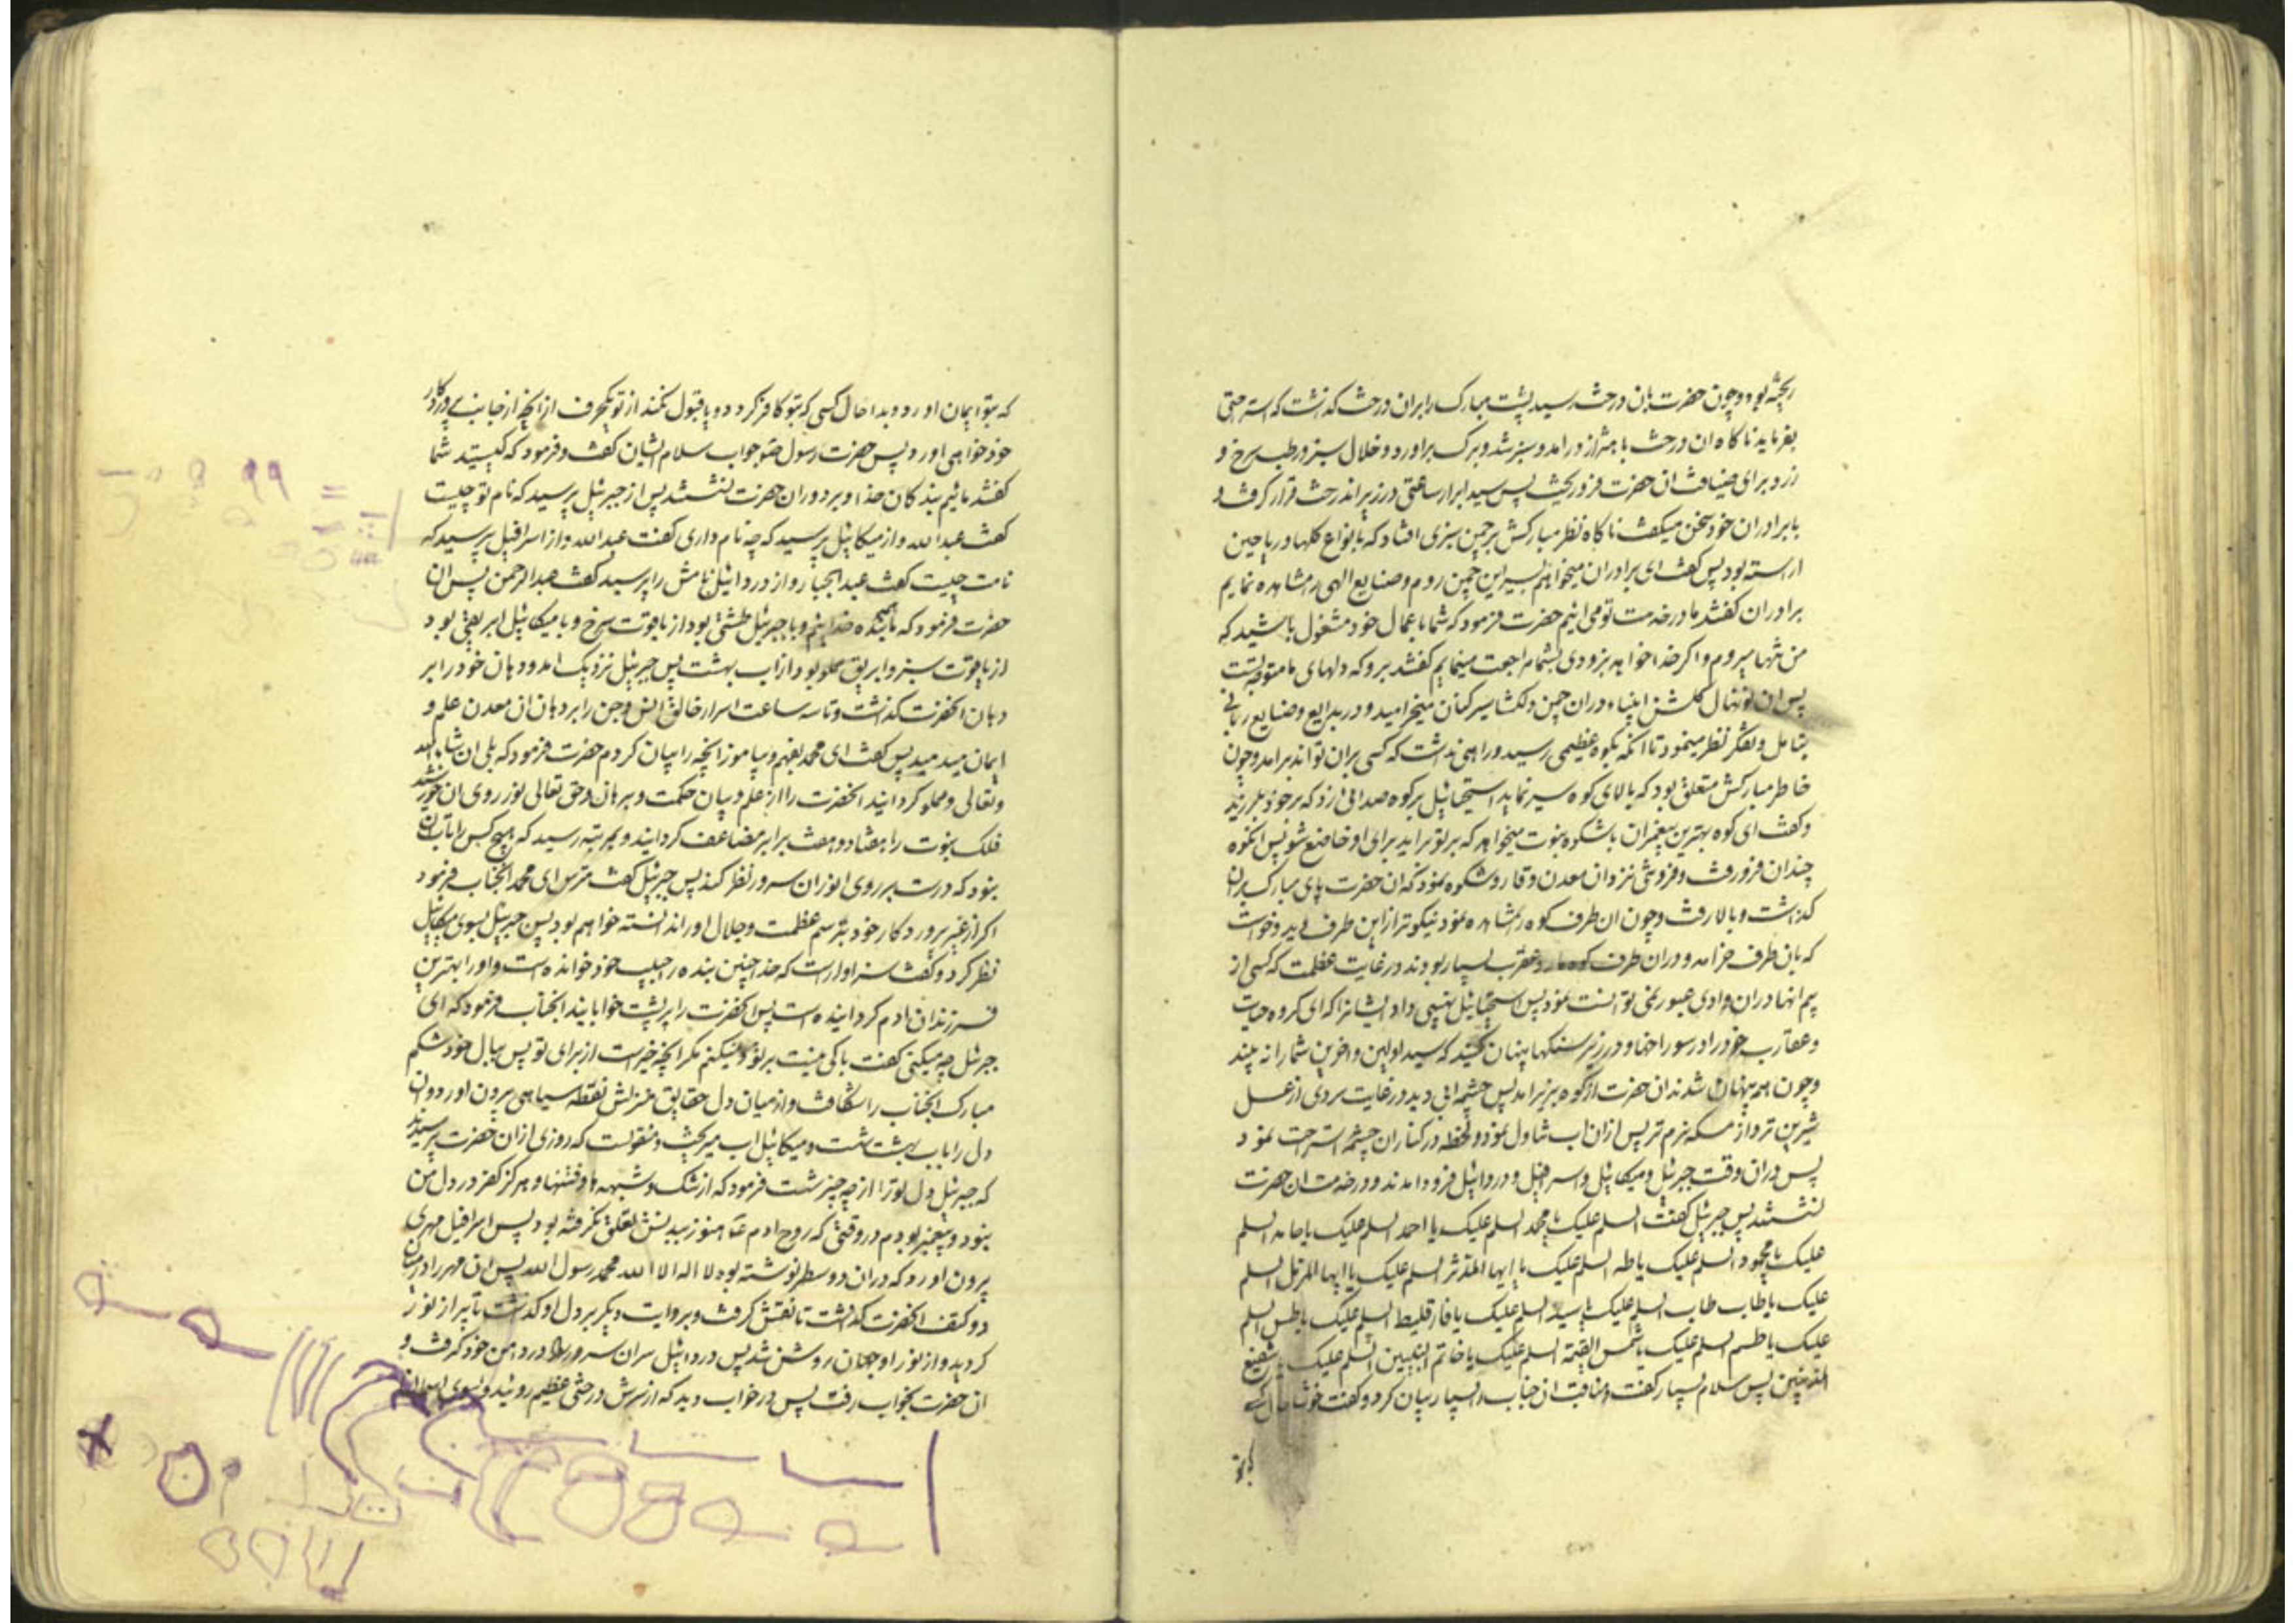 ریخته بود و چون حضرت بان درخت رسید پشت مبارک را بران درخت گذاشت که استراحتی
بفرماید ناکاه ان درخت باهتزاز درامد و سبز شد و برک براورد و خلال سبز و رطب سرخ و
زرد برای ضیافت ان حضرت فرو ریخت پس سید ابرار ساعتی در زیر اندرخت قرار کرفت و
با برادران خود سخن میکفت ناکاه نظر مبارکش بر چمن سبزی افتاد که بانواع کلها و ریاحین
اراسته بود پس کفت ای برادران میخواهم بسیر این چمن روم و صنایع الهی را مشاهده نمایم
برادران کفتند ما در خدمت تو می ائیم حضرت فرمود که شما باعمال خود مشغول باشید که
من تنها میروم و اکر خدا خواهد بزودی بشما مراجعت مینمایم کفتند برو که دلهای ما متوجه تست
پس ان نونهال کلشن انبیاء دران چمن دلکشا سیر کنان میخرامید و در بدایع و صنایع ربانی
بتامل و تفکر نظر مینمود تا انکه بکوه عظیمی رسید و راهی نداشت که کسی بران تواند برامد و چون
خاطر مبارکش متعلق بود که بالای کوه سیر نماید استحیائیل بر کوه صدائی زد که بر خود بلرزید
و کفت ای کوه بهترین پیغمبران باشکوه نبوت میخواهد که بر تو براید برای او خاضع شو پس انکوه
چندان فرو رفت و فروتنی نزد ان معدن وقار و شکوه نمود که ان حضرت پای مبارک بران
کذاشت و بالا رفت و چون ان طرف کوه را مشاهده نمود نیکوتر از این طرف دید و خواست
که بان طرف خرامد و دران طرف کوه مار و عقرب بسیار بودند در غایت عظمت که کسی از
بیم انها دران وادی عبور نمی توانست نمود پس استحیائیل نهیبی داد ایشانرا که ای کروه حیات
و عقارب خود را در سوراخها و در زیر سنکها پنهان کنید که سید اولین و اخرین شما را نه بیند
و چون همه پنهان شدند ان حضرت از کوه بزیر امد پس چشمه ابی دید در غایت سردی از عسل
شیرین تر و از مسکه نرم تر پس ازان اب تناول نمود و لحظه در کنار ان چشمه استراحت نمود
پس دران وقت جبرئیل و میکائیل و اسرافیل و دردائیل فرود امدند و در خدمت ان حضرت
نشستند پس جبرئیل کفت السلم علیک یا محمد السلم علیک یا احمد السلم علیک یا حامد السلم
علیک یا محمود السلم علیک یا طه السلم علیک یا ایها المدثر السلم علیک یا ایها المزمل السلم
علیک یا طاب طاب السلم علیک یا سید السلم علیک یا فارقلیط السلم علیک یا طس السلم
علیک یا طسم السلم علیک یا شمس القیمة السلم علیک یا خاتم النبیین السلم علیک یا شفیع
المذنبین پس سلام بسیار کفت و مناقب ان جناب را بسیار بیان کرد و کفت خوشا حال کسی
که بتو
که بتو ایمان اورد و بدا حال کسی که بتو کافر کردد و یا قبول نکند از تو یکحرف از انچه از جانب پروردکار
خود خواهی اورد پس حضرت رسول ص جواب سلام ایشان کفت و فرمود که کیستید شما
کفتند مائیم بندکان خدا و بر دوران حضرت نشستند پس از جبرئیل پرسید که نام تو چیست
کفت عبدالله و از میکائیل پرسید که چه نام داری کفت عبدالله و از اسرافیل پرسید که
نامت چیست کفت عبد الجبار و از دردائیل نامش را پرسید کفت عبد الرحمن پس ان
حضرت فرمود که همه بنده خدائیم و با جبرئیل طشتی بود از یاقوت سرخ و با میکائیل ابریقی بود
از یاقوت سبز و ابریق مملو بود از اب بهشت پس جبرئیل نزدیک امد و دهان خود را بر
دهان انحضرت کذاشت و تا سه ساعت اسرار خالق انس و جن را بر دهان ان معدن علم و
ایمان میدمید پس کفت ای محمد بفهم و بیاموز انچه را بیان کردم حضرت فرمود که بلی ان شاء الله
و تعالی و مملو کردانید انحضرت را از علم و بیان حکمت و برهان و حق تعالی نور روی ان خورشید
فلک نبوت را هفتاد و هفت برابر مضاعف کردانید و بمرتبه رسید که هیچ کس را تاب ان
نبود که درست بر روی انور ان سرور نظر کند پس جبرئیل کفت مترس ای محمد انجناب فرمود
اکر از غیر پروردکار خود بترسم عظمت و جلال او را ندانسته خواهم بود پس جبرئیل بسوی میکائیل
نظر کرد و کفت سزاوار است که خدا چنین بنده را حبیب خود خوانده است و او را بهترین
فرزندان ادم کردانیده است پس انحضرت را بر پشت خوابانید انجناب فرمود که ای
جبرئیل چه میکنی کفت باکی نیست بر تو و نمیکنم مکر انچه خیر است از برای تو پس ببال خود شکم
مبارک انجناب را شکافت و از میان دل حقایق منزلش نقطه سیاهی بیرون اورد و ان
دل را باب بهشت شست و میکائیل اب میریخت و منقولست که روزی از ان حضرت پرسیدند
که جبرئیل دل تو را از چه چیز شست فرمود که از شک و شبهه ها و فتنها و هرکز کفر در دل من
نبود و پیغمبر بودم در وقتی که روح ادم ع هنوز ببدنش تعلق نکرفته بود پس اسرافیل مهری
بیرون اورد که دران دو سطر نوشته بود لا اله الا الله محمد رسول الله پس ان مهر را در میان
دو کتف انحضرت کذاشت تا نقش کرفت و بروایت دیکر بر دل او کذاشت تا پر از نور
کردید و از نور او جهان روشن شد پس دردائیل سر ان سرور را در دامن خود کرفت و
ان حضرت بخواب رفت پس در خواب دید که از سرش درختی عظیم روئید و بسوی اسمان